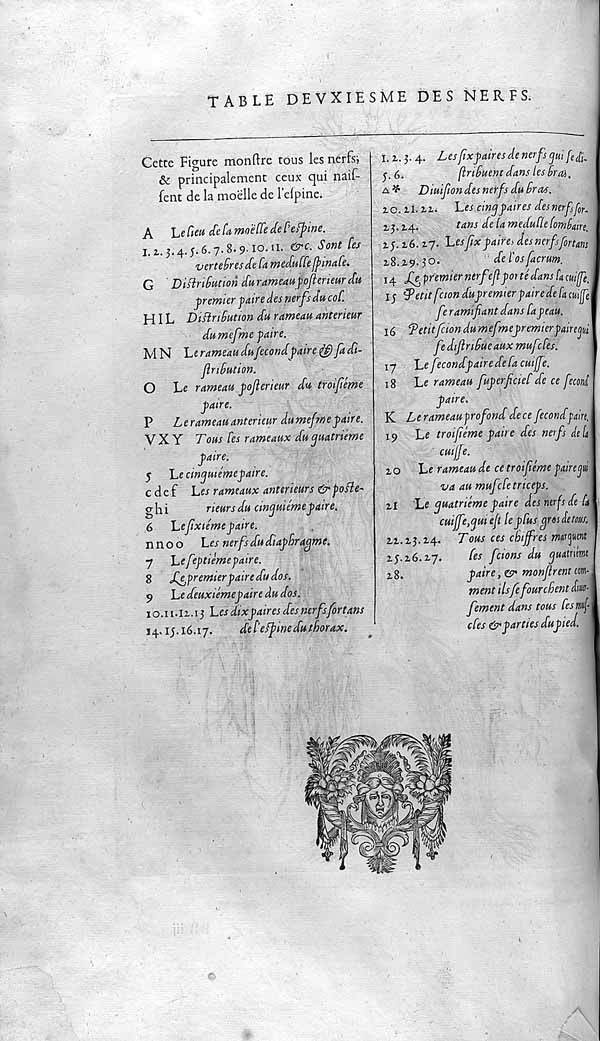 TABLE DEVXIESME DES NERFS.
Cette Figure monſtre tous les nerfs;
& principalement ceux qui naiſ-
ſent de la moëlle de l'eſpine.
A Le lieu de la moëlle de l'eſpine.
1. 2. 3. 4. 5. 6. 7. 8. 9. 10. 11. &c. Sont les
vertebres de la medulle ſpinale.
G Diſtribution du rameau poſterieur du
premier paire des nerfs du col.
HIL Diſtribution du rameau anterieur
du meſme paire.
MN Le rameau du ſecond paire & ſa di-
ſtribution.
O Le rameau poſterieur du troiſiéme
paire.
P Le rameau anterieur du meſme paire.
VXY Tous les rameaux du quatriéme
paire.
5 Le cinquiéme paire.
cdef Les rameaux anterieurs & poſte-
ghi rieurs du cinquiéme paire.
6 Le ſixiéme paire.
nnoo Les nerfs du diaphragme.
7 Le ſeptiéme paire.
8 Le premier paire du dos.
9 Le deuxiéme paire du dos.
10. 11. 12. 13 Les dix paires des nerfs ſortans
14. 15. 16. 17. de l'eſpine du thorax.
1. 2. 3. 4. Les ſix paires de nerfs qui ſe di-
5. 6. ſtribuent dans les bras.
△* Diuiſion des nerfs du bras.
20. 21. 22. Les cinq paires des nerfs ſor-
23. 24. tans de la medulle lombaire.
25. 26. 27. Les ſix paires des nerfs ſortans
28. 29. 30. de l'os ſacrum.
14 Le premier nerf eſt porté dans la cuiſſe.
15 Petit ſcion du premier paire de la cuiſſe
ſe ramifiant dans la peau.
16 Petit ſcion du meſme premier paire qui
ſe diſtribue aux muſcles.
17 Le ſecond paire de la cuiſſe.
18 Le rameau ſuperficiel de ce ſecond
paire.
K Le rameau profond de ce ſecond paire.
19 Le troiſiéme paire des nerfs de la
cuiſſe.
20 Le rameau de ce troiſiéme paire qui
va au muſcle triceps.
21 Le quatriéme paire des nerfs de la
cuiſſe, qui eſt le plus gros de tous.
22. 23. 24. Tous ces chiffres marquent
25. 26. 27. les ſcions du quatriéme
28. paire, & monſtrent com-
ment ils ſe fourchent diuer-
ſement dans tous les muſ-
cles & parties du pied.